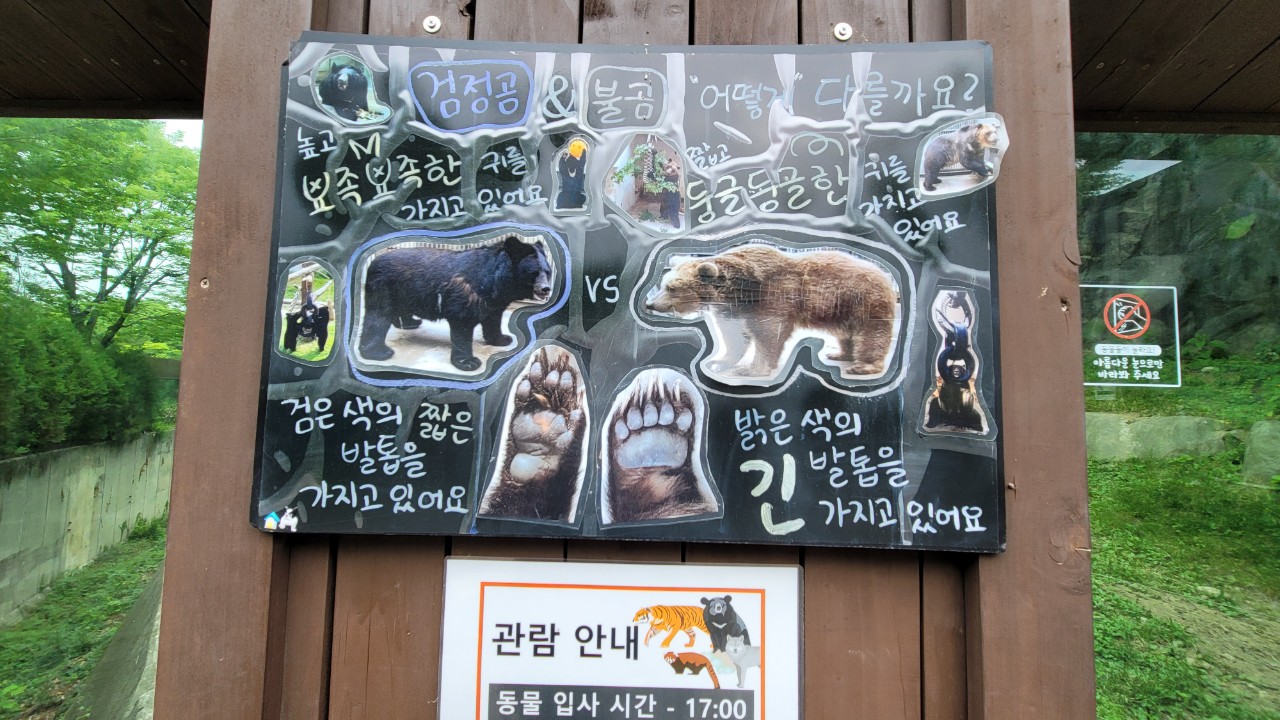 검정곰 & 불곰 "어떻게" 다를까요?
높고
뾰족뾰족한 귀를
가지고 있어요
짧고
둥글둥글한 귀를
가지고
있어요
vs
검은 색의 짧은
발톱을
가지고 있어요
밝은 색의
긴 발톱을
가지고 있어요
관람 안내
동물 입사 시간 - 17:00
동물들이 놀라요!
아름다운 눈으로만
바라봐 주세요